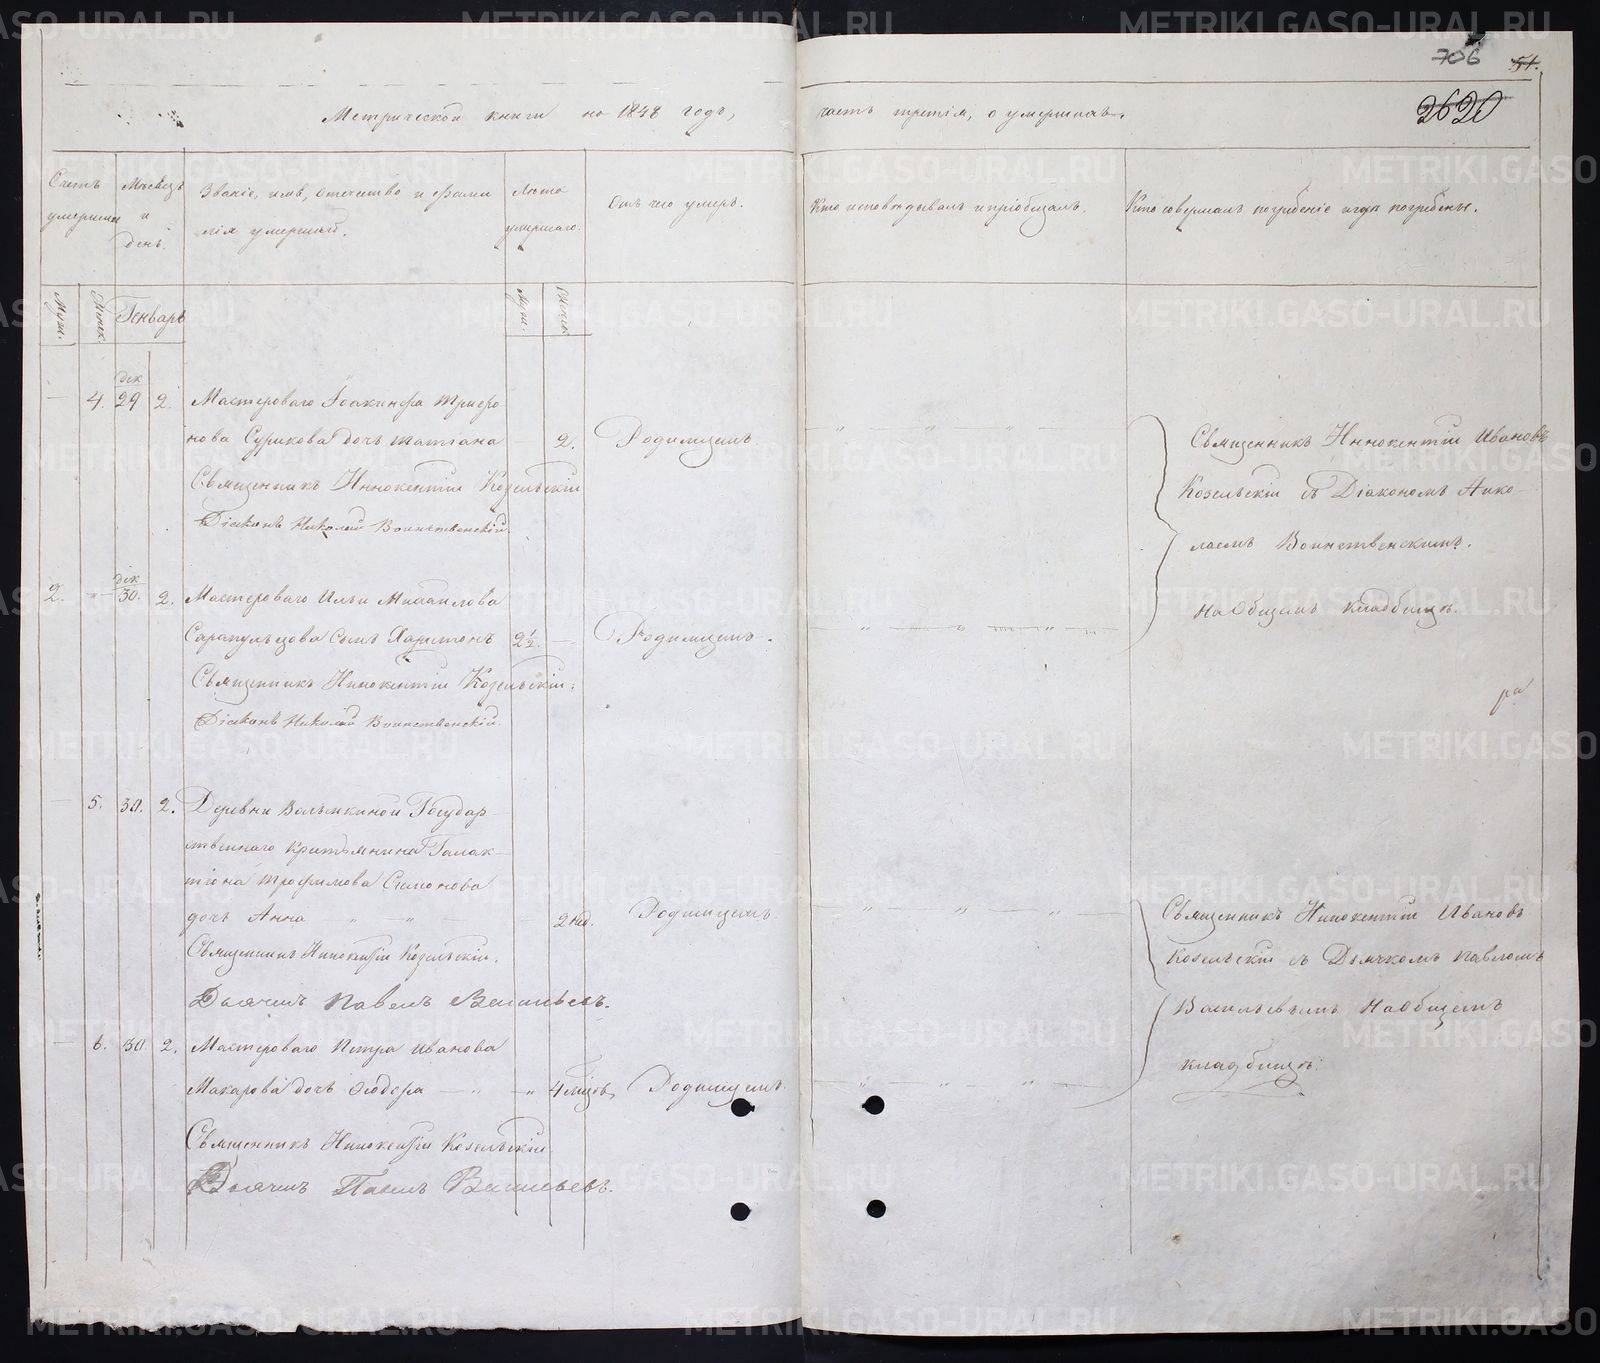 706 51.
2620
Метрической книги на 1848 годъ, часть третія, о умершихъ.
Счетъ умершихъ
Мѣсяцъ и день.
Званіе, имя, отечество и фамилія умершихъ.
Лѣта умершаго.
Отъ чего умеръ.
Кто исповѣдывалъ и пріобщалъ.
Кто совершалъ погребеніе и гдѣ погребены.
Муж. Женск. Генварь Муж. Женск.
дек
4. 29 2. Мастероваго Іоакинфа Трифо-
нова Сурикова дочь Татіана 2. Родимцемъ.
Священникъ Иннокентій Козельскій
Діаконъ Николай Воинственскій.
Священникъ Иннокентій Ивановъ
Козельскій съ Діакономъ Нико-
лаемъ Воинственскимъ.
На Общемъ кладбищѣ.
дек
2. 30. 2. Мастероваго Ильи Михаилова
Сарапульцова Сынъ Харитонъ 2½. Родимцемъ.
Священникъ Иннокентій Козельскій;
Діаконъ Николай Воинственскій.
5. 30. 2. Деревни Государ-
ственнаго крестьянина Галак-
тіона Трофимова Симонова
дочь Анна 2 нед. Родимцемъ.
Священникъ Иннокентій Козельскій.
Дьячекъ Павелъ Васильевъ.
Священникъ Иннокентій Ивановъ
Козельскій съ Дьячкомъ Павломъ
Васильевымъ На Общемъ
кладбищѣ.
6. 30. 2. Мастероваго Петра Иванова
Макарова дочь Ѳеодора 4 мцовъ, Родимцемъ.
Священникъ Иннокентій Козельскій
Дьячекъ Павелъ Васильевъ.
METRIKI.GASO-URAL.RU